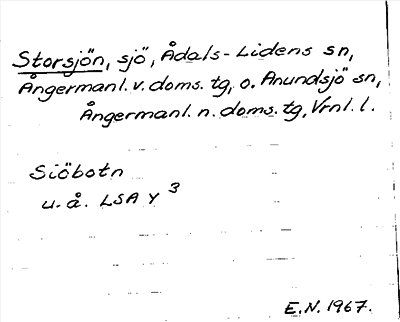 Storsjön, sjö, Ådals-Lidens sn,
Ångermanl. v. doms. tg, o. Anundsjö sn,
Ångermanl. n. doms. tg, Vrnl. l.
Siöbotn
u. å. LSA Y 3
E.N. 1967.